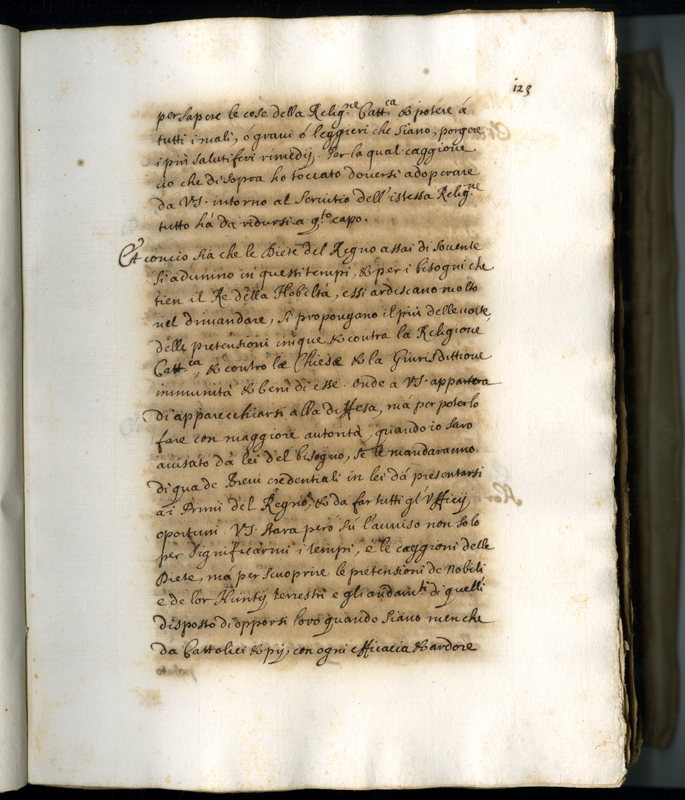 123
per sapere le cose della Relig.ne Catt.ca et potere à
tutti i mali, ò gravi ò leggieri che siano, porgere
i più salutiferi rimedij. Per la qual caggione
ciò che di sopra ho toccato doversi adoperare
da V.S. intorno al servitio dell'istessa Relig.ne
tutto hà da ridursi a q.to capo.
Et concio sia che le Diete del Regno assai di sovente
si adunino in questi tempi, et per i bisogni che
tien il Re della Nobiltà, essi ardiscano molto
nel dimandare, si propongano il più delle volte
delle pretensioni inique et contra la Religione
Catt.ca, et contro læ Chiesæ et la Giurisdittione
immunità et beni di esse. onde a V.S. apparterà
di apparecchiarsi alla diffesa, mà per poterlo
fare con maggiore autorità, quando io sarò
avisato dà lei del bisogno, se le mandaranno
di qua de Brevi credentiali in lei dà presentarsi
ai Primi del Regno, et da far tutti gl'Ufficij
oportuni. V.S. starà però sù l'avviso non solo
per significarmi i tempi, e le caggioni delle
Diete, mà per scuoprire le pretensioni de nobili
e de lor Nuntij terrestri e gli andam.ti di quelli
disposto di opporsi loro quando siano men che
da Cattolici et pij, con ogni efficacia et ardore